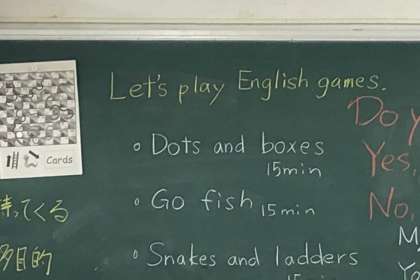 Let's play English games.
Cards
• Dots and boxes
15min
• Go fish 15min
• Snakes and ladders
Do
Yes,
No,
てくる
目的